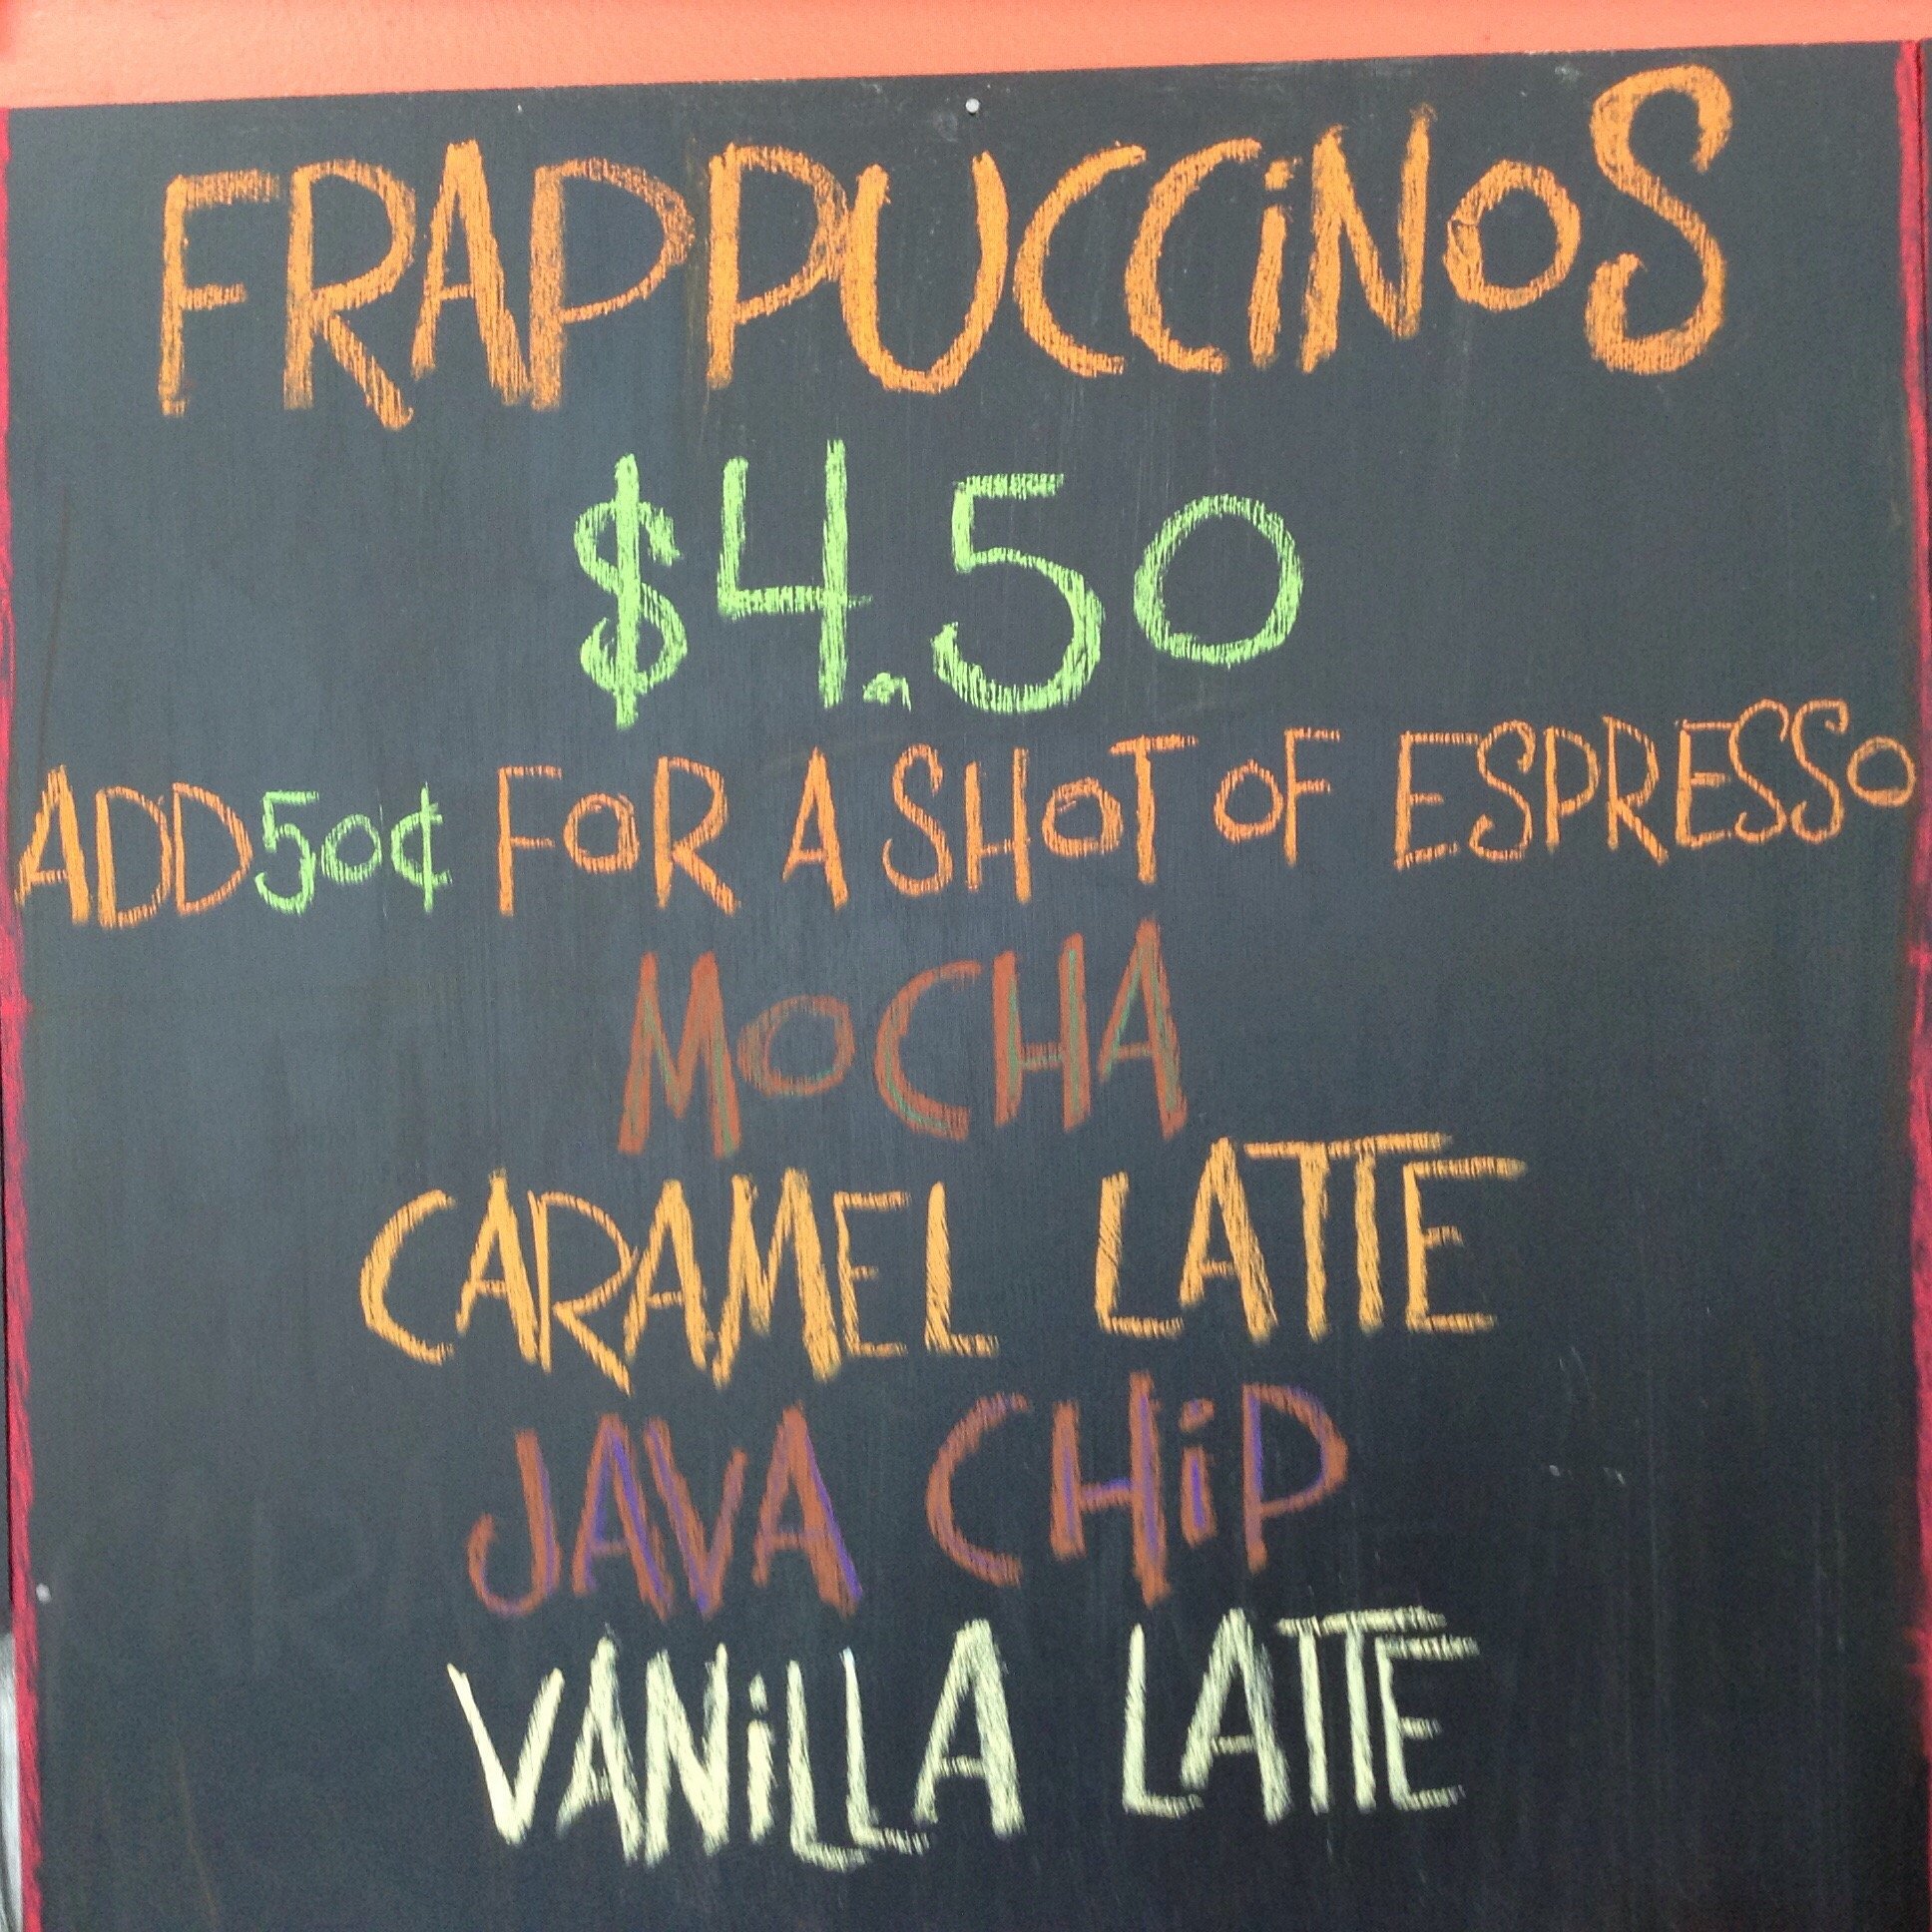 FRAPPUCCiNOS
$4.50
ADD 50¢ FOR A SHOT OF ESPRESSO
MOCHA
CARAMEL LATTE
JAVA CHiP
VANiLLA LATTE